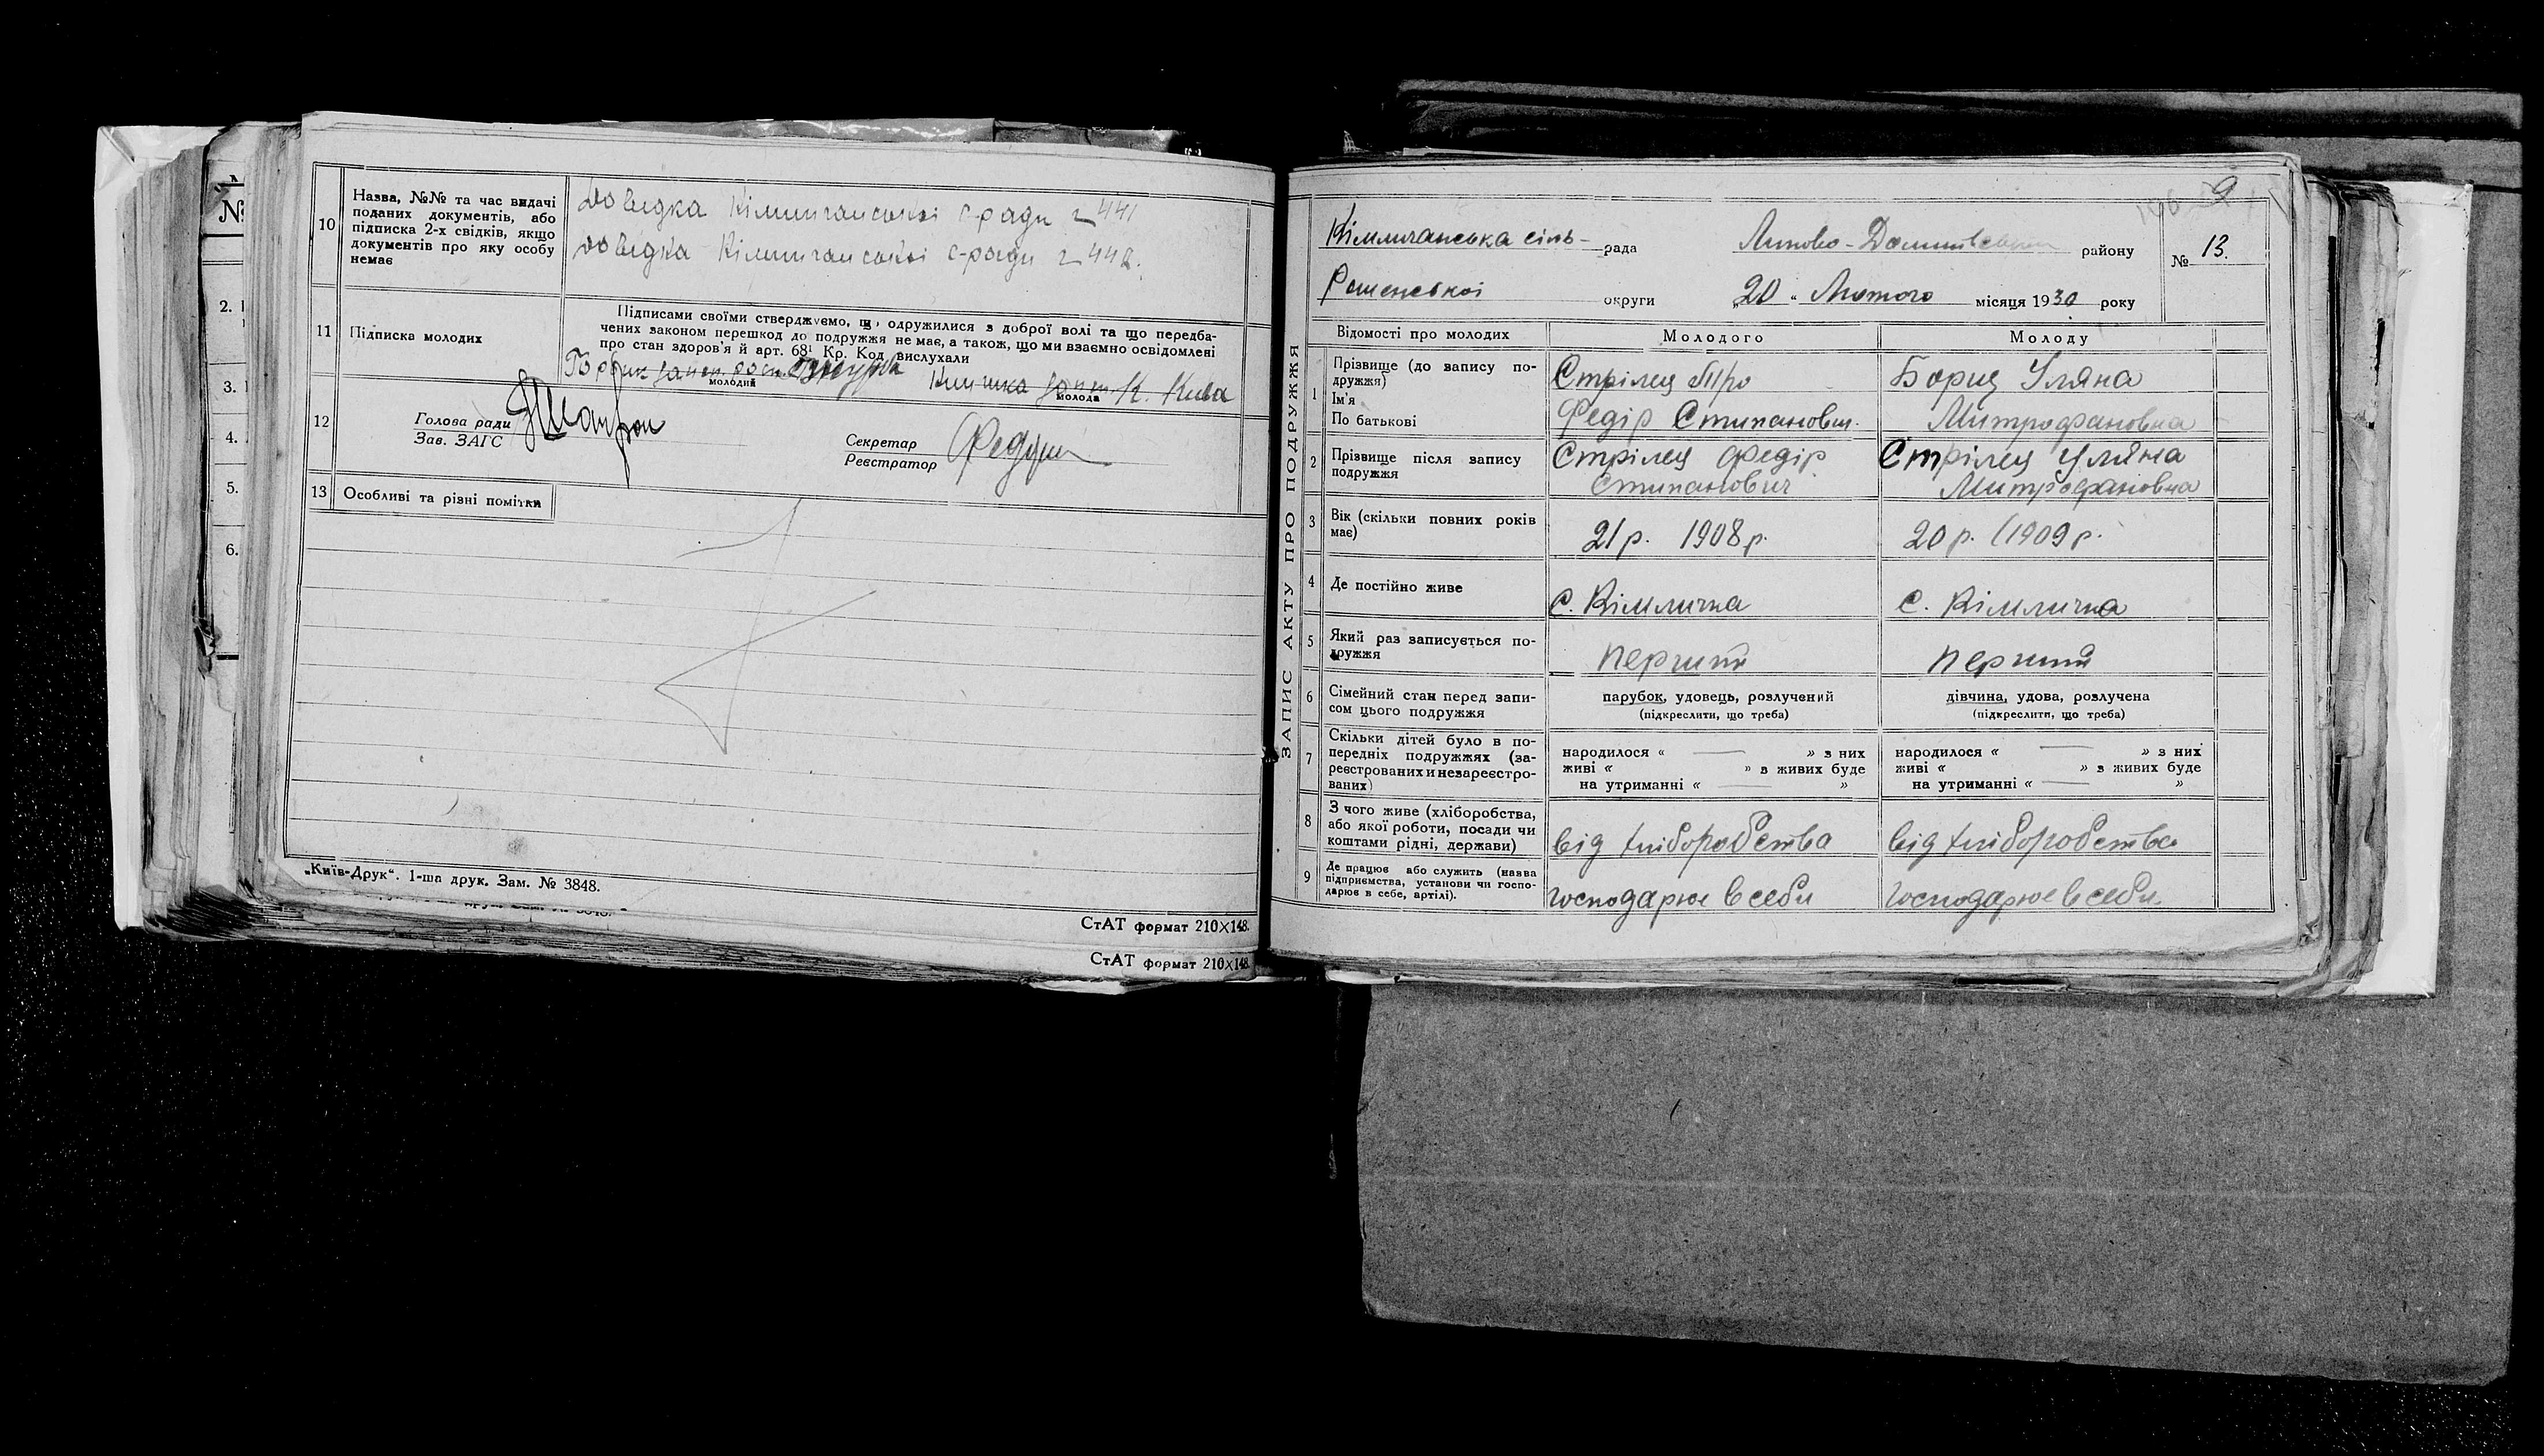 10
Назва, №№ та час видачі
поданих документів, або
підписка 2-х свідків, якщо
документів про яку особу
немає
Довидка Кімличанської с-ради № 441
Довидка Кімличанської с-ради № 442.
11
Підписка молодих
Підписами своїми стверджуємо, що одружилися з доброї волі та що передба-
чених законом перешкод до подружжя не має, а також, що ми взаємно освідомлені
про стан здоров'я й арт. 68¹ Кр. Код вислухали
молодий
молода
12
Голова ради
Зав. ЗАГС
Секретар
Реєстратор
13 Особливі та різні помітки
„Київ-Друк“. 1-ша друк. Зам. № 3848.
СтАТ формат 210×148.
СтАТ формат 210×148.
№
2.
3.
4.
5.
6.
ЗАПИС АКТУ ПРО ПОДРУЖЖЯ
Кімличанська сіль- рада Липово- району
№ 13.
Роменської округи „20“ Лютого місяця 1930 року
Відомості про молодих
Молодого
Молоду
1
Прізвище (до запису по-
дружжя)
Ім'я
По батькові
Стрілец
Федір Стипанович.
Бориц Уляна
Митрофановна
2
Прізвище після запису
подружжя
Стрілец Федір
Стипанович
Стрілец Уляна
Митрофановна
3
Вік (скільки повних років
має)
21 р. 1908 р.
20 р. (1909 р.
4
Де постійно живе
с. Кімличка
с. Кімличка
5
Який раз записується по-
дружжя
перший
перший
6
Сімейний стан перед запи-
сом цього подружжя
парубок, удовець, розлучений
(підкреслити, що треба)
дівчина, удова, розлучена
(підкреслити, що треба)
7
Скільки дітей було в по-
передніх подружжях (за-
реєстрованих и незареєстро-
ваних)
народилося « — » з них
живі « » з живих буде
на утриманні « — »
народилося « — » з них
живі « » з живих буде
на утриманні « — »
8
З чого живе (хліборобства,
або якої роботи, посади чи
коштами рідні, держави)
від хліборобства
від хліборобства
9
Де працює або служить (назва
підприємства, установи чи госпо-
дарює в себе, артілі).
господарює в себи
господарює в себи.